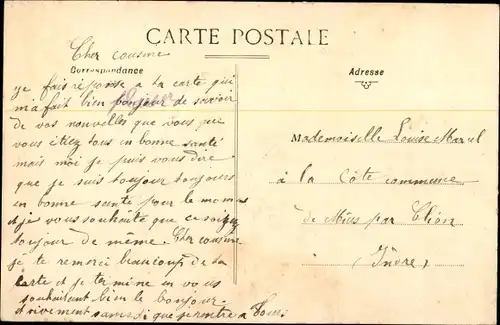 CARTE POSTALE
Cher cousine
Correspondance
je fais réponse a ta carte qui
m'a fait bien bonjour de savoir
de vos nouvelles que vous
vous étiez tous en bonne santé
mais moi je puis vous dire
que je suis toujour toujours
en bonne santé pour le moment
et je vous souhaite que ce soit
toujour de même. Cher cousine
je te remerci beaucoup de ta
carte et je termine en vous
souhaitant bien le bonjour
vivement samedi que je rentre a
Adresse
Mademoiselle Louise Marcel
à la Côte commune
de par Clion
(Indre)